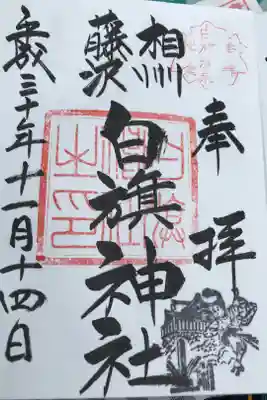 奉拝
相州
藤沢
白旗神社
平成三十年十一月十四日